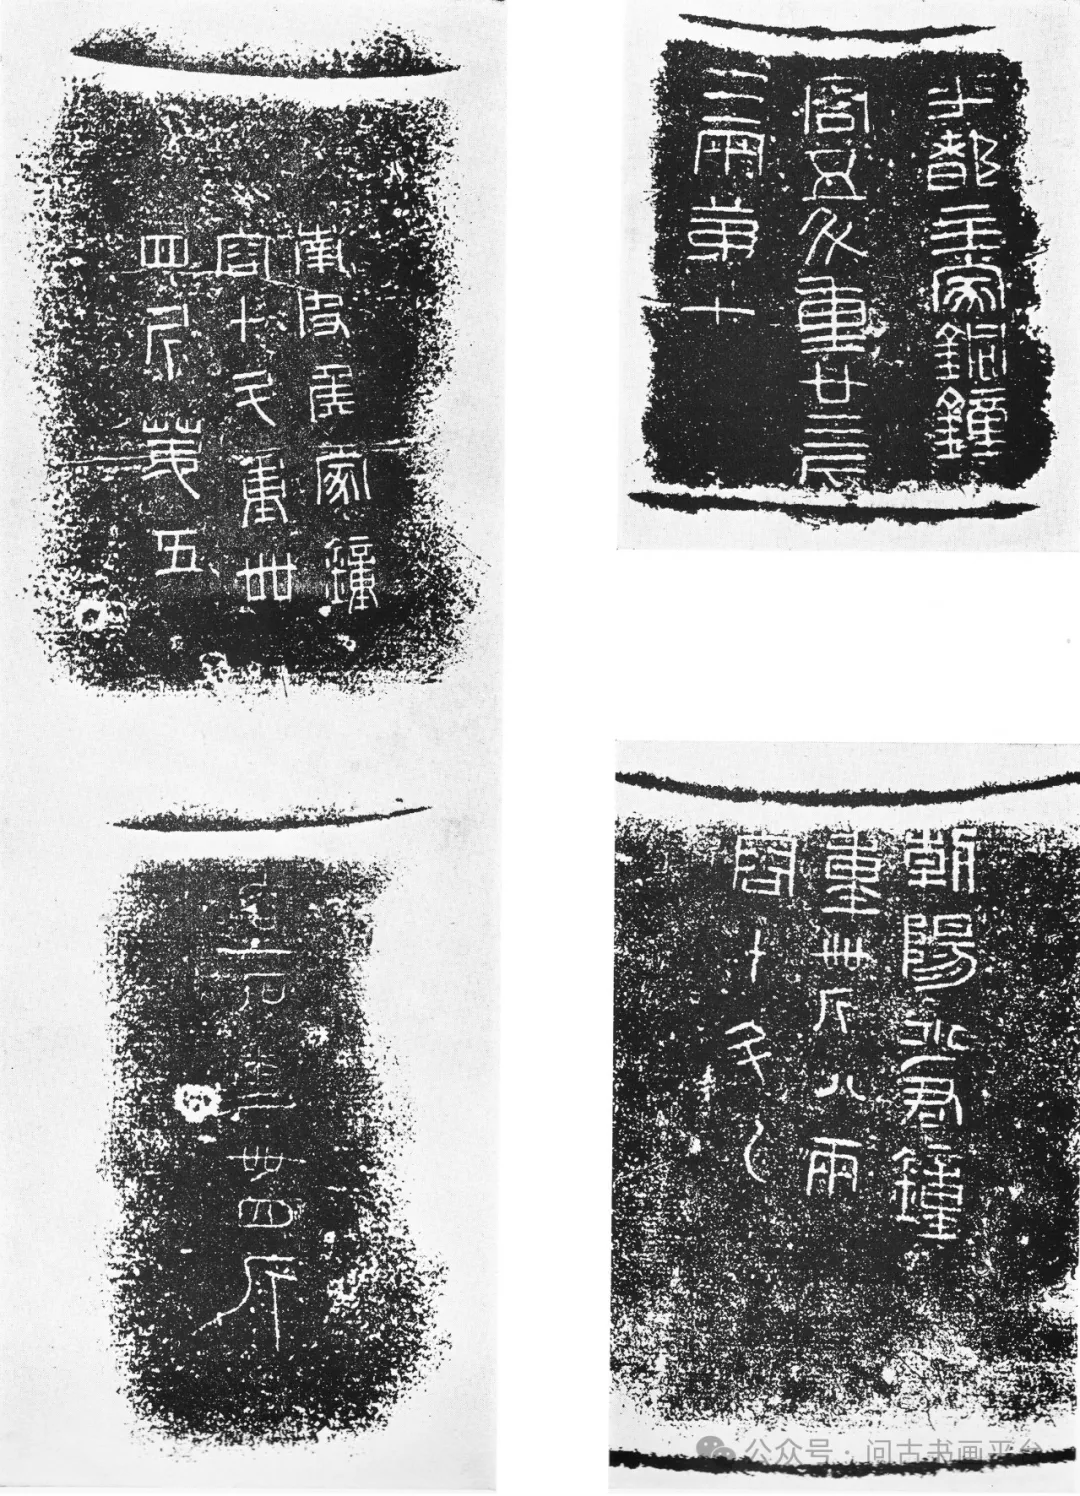 平都主家銅鍾
容五斗重廿三斤
二兩第十
南皮侯家鍾
容十斗重卌
四斤第五
朝陽少君鍾
重卌斤八兩
容十斗
卌四斤
公众号·问古书画平台